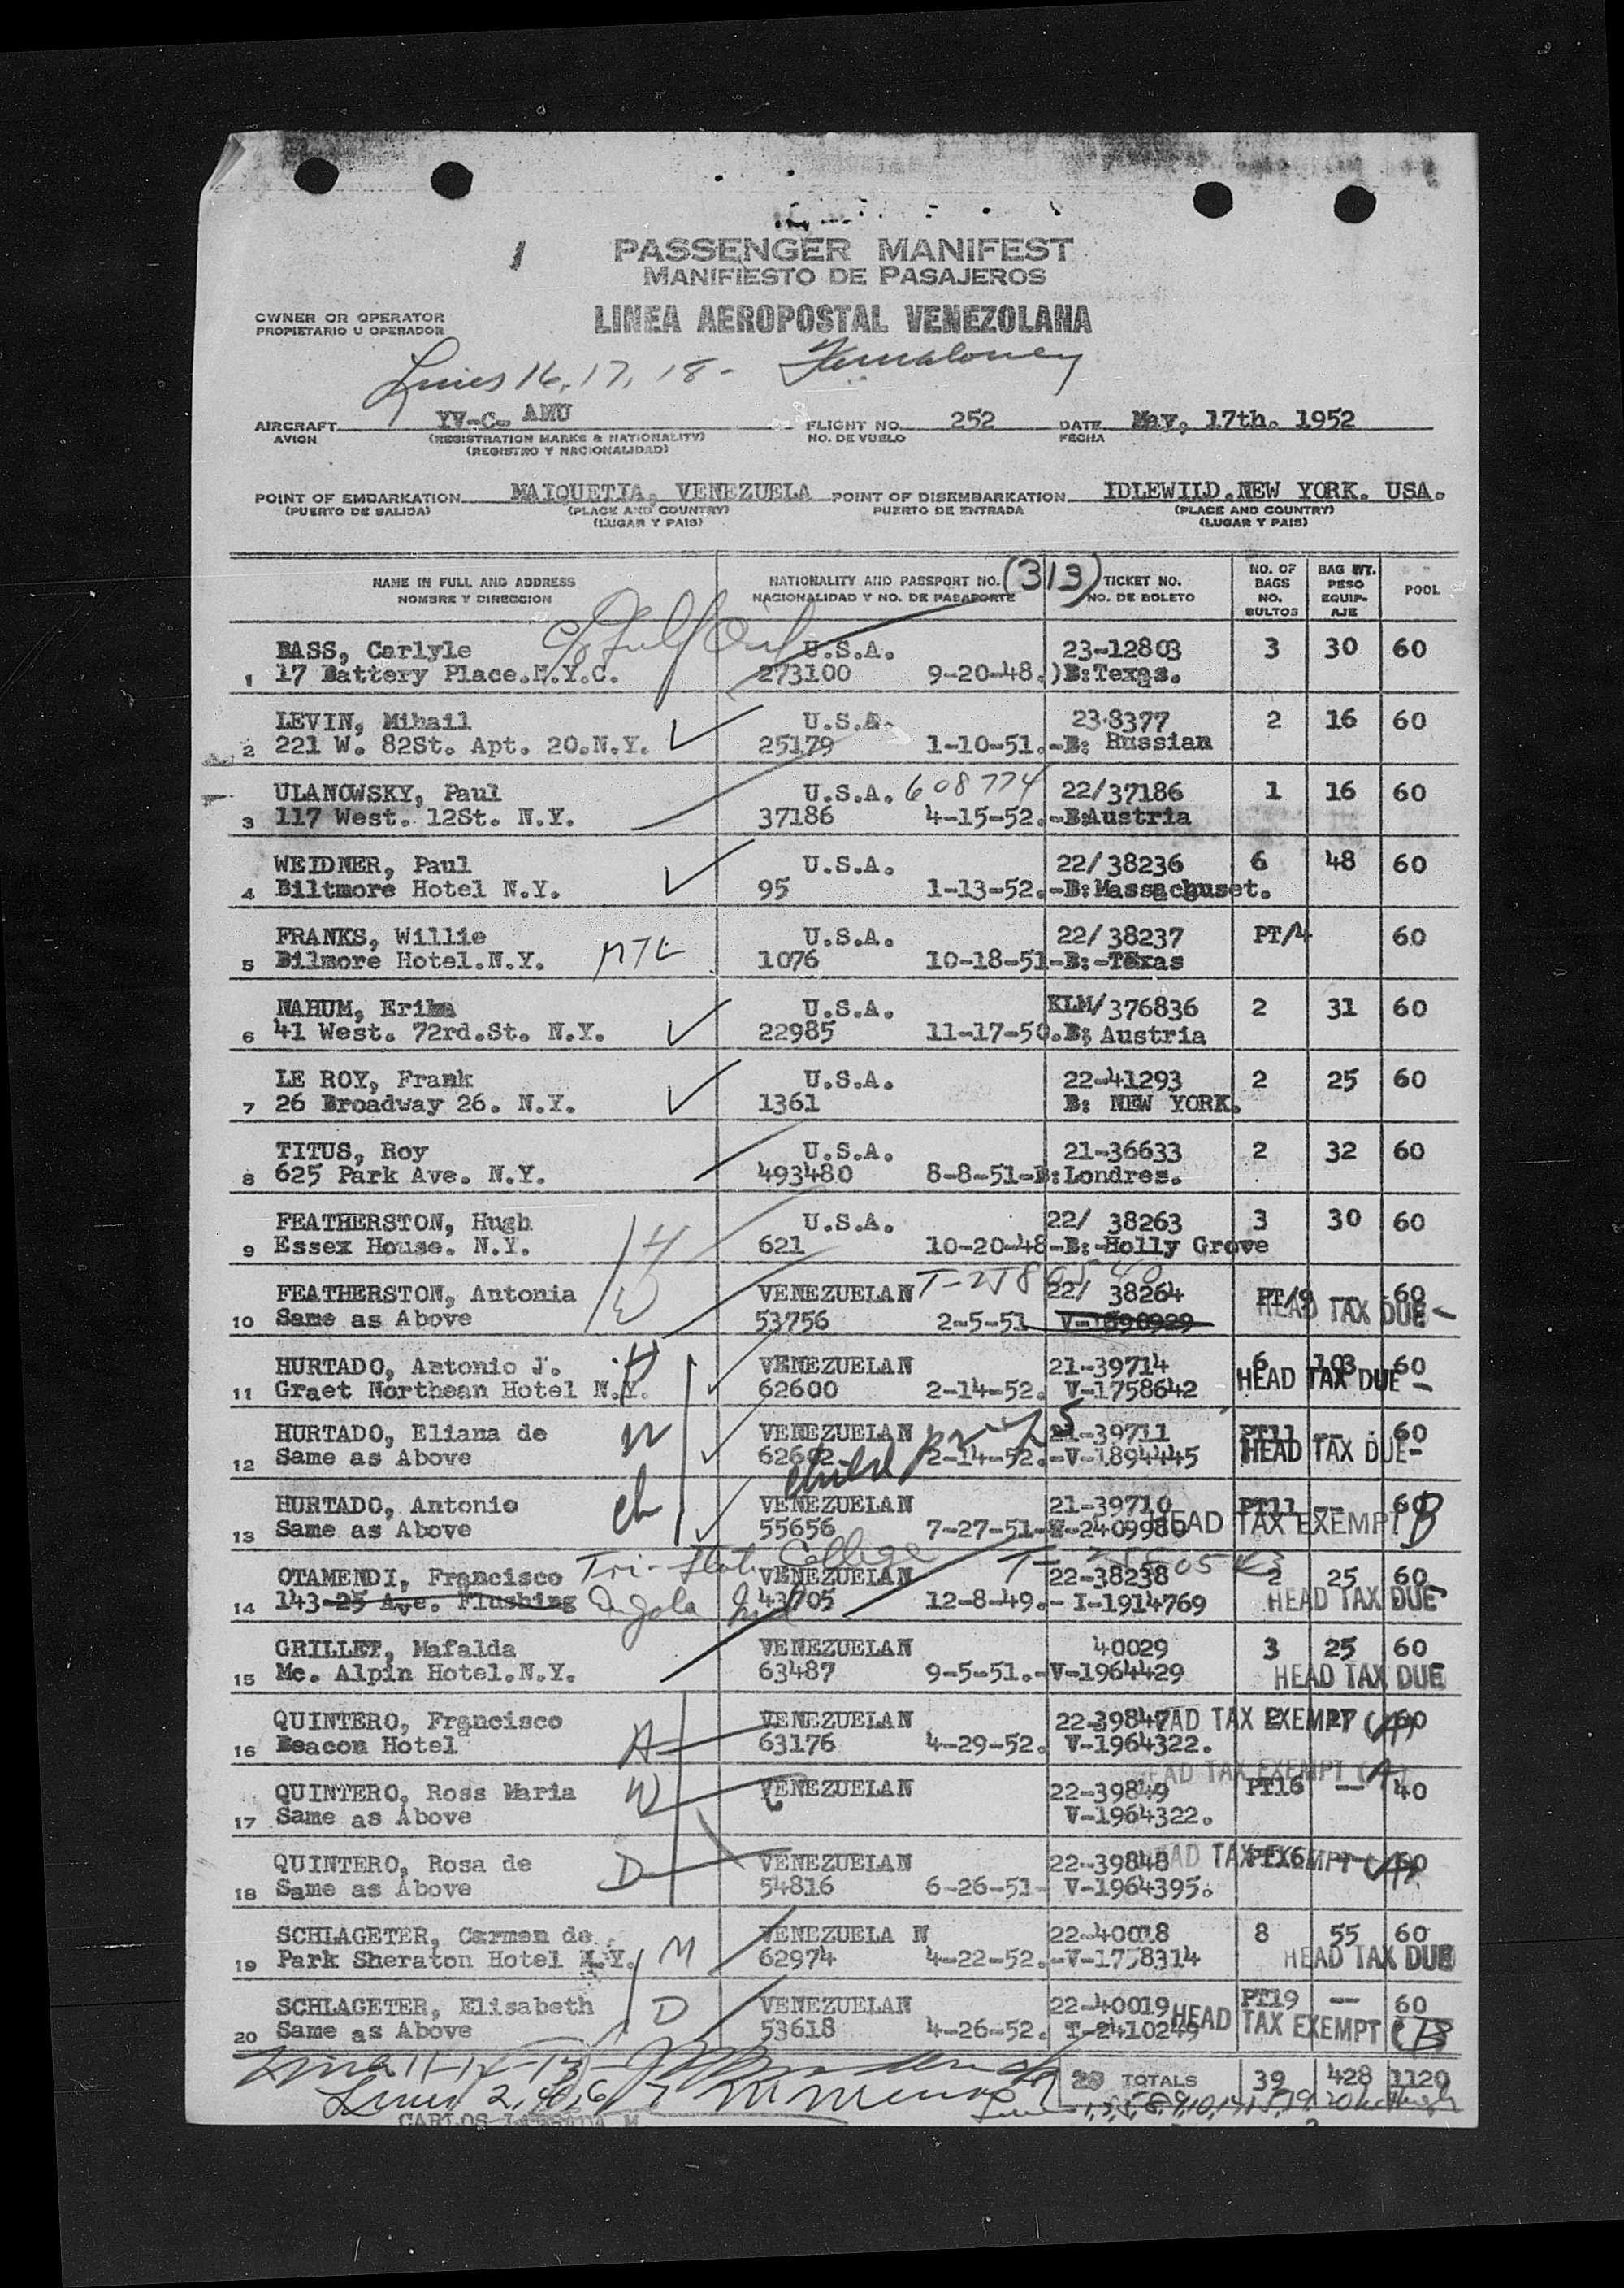 1
PASSENGER MANIFEST
MANIFIESTO DE PASAJEROS
OWNER OR OPERATOR
PROPIETARIO U OPERADOR
LINEA AEROPOSTAL VENEZOLANA
Lines 16, 17, 18 -
AIRCRAFT YV-C- AMU FLIGHT NO. 252 DATE May, 17th. 1952
AVION (REGISTRATION MARKS & NATIONALITY) NO. DE VUELO FECHA
(REGISTRO Y NACIONALIDAD)
POINT OF EMBARKATION MAIQUETIA, VENEZUELA POINT OF DISEMBARKATION IDLEWILD.NEW YORK. USA.
(PUERTO DE SALIDA) (PLACE AND COUNTRY) PUERTO DE ENTRADA (PLACE AND COUNTRY)
(LUGAR Y PAIS) (LUGAR Y PAIS)
NAME IN FULL AND ADDRESS NATIONALITY AND PASSPORT NO. (313) TICKET NO. NO. OF BAGS BAG WT. POOL
NOMBRE Y DIRECCION NACIONALIDAD Y NO. DE PASAPORTE NO. DE BOLETO NO. BULTOS PESO EQUIP-AJE
c/o Gulf Oil
BASS, Carlyle U.S.A. 23-12803 3 30 60
1 17 Battery Place.N.Y.C. 273100 9-20-48.)B:Texas.
LEVIN, Mihail U.S.A. 23-8377 2 16 60
2 221 W. 82St. Apt. 20.N.Y. 25179 1-10-51.-B: Russian
ULANOWSKY, Paul U.S.A. 608774 22/37186 1 16 60
3 117 West. 12St. N.Y. 37186 4-15-52.-B:Austria
WEIDNER, Paul U.S.A. 22/38236 6 48 60
4 Biltmore Hotel N.Y. 95 1-13-52.-B:Massachuset.
FRANKS, Willie U.S.A. 22/38237 PT/4 60
5 Bilmore Hotel.N.Y. 1076 10-18-51-B:-Texas
NAHUM, Erika U.S.A. KLM/376836 2 31 60
6 41 West. 72rd.St. N.Y. 22985 11-17-50.B; Austria
LE ROY, Frank U.S.A. 22-41293 2 25 60
7 26 Broadway 26. N.Y. 1361 B: NEW YORK.
TITUS, Roy U.S.A. 21-36633 2 32 60
8 625 Park Ave. N.Y. 493480 8-8-51-B:Londres.
FEATHERSTON, Hugh H U.S.A. 22/ 38263 3 30 60
9 Essex House. N.Y. 621 10-20-48-B:-Holly Grove
FEATHERSTON, Antonia W VENEZUELAN 22/ 38264 PT/9 -- 60
10 Same as Above 53756 2-5-51 V-1890929 HEAD TAX DUE -
HURTADO, Antonio J. H VENEZUELAN 21-39714 6 103 60
11 Graet Northean Hotel N.Y. 62600 2-14-52. V-1758642 HEAD TAX DUE -
HURTADO, Eliana de W VENEZUELAN 21-39711 PT11 -- 60
12 Same as Above 62602 2-14-52.-V-1894445 HEAD TAX DUE-
HURTADO, Antonio ch VENEZUELAN 21-39710 PT11 -- 60
13 Same as Above 55656 7-27-51-V-2409980 HEAD TAX EXEMPT B
Tri-State College
OTAMENDI, Francisco VENEZUELAN 22-38238 2 25 60
14 143-25 Ave. Flushing Angola Ind 43705 12-8-49.- I-1914769 HEAD TAX DUE
GRILLET, Mafalda VENEZUELAN 40029 3 25 60
15 Mc. Alpin Hotel.N.Y. 63487 9-5-51.-V-1964429 HEAD TAX DUE
QUINTERO, Francisco VENEZUELAN 22-39847 HEAD TAX EXEMPT (A) 2 27 60
16 Beacon Hotel H 63176 4-29-52. V-1964322.
HEAD TAX EXEMPT (A)
QUINTERO, Ross Maria W VENEZUELAN 22-39849 PT16 -- 40
17 Same as Above V-1964322.
QUINTERO, Rosa de D VENEZUELAN 22-39848 HEAD TAX EXEMPT (A) PT16 -- 60
18 Same as Above 54816 6-26-51- V-1964395.
SCHLAGETER, Carmen de VENEZUELA N 22-40018 8 55 60
19 Park Sheraton Hotel N.Y. M 62974 4-22-52.-V-1758314 HEAD TAX DUE
SCHLAGETER, Elisabeth D VENEZUELAN 22-40019 PT19 -- 60
20 Same as Above 53618 4-26-52. T-2410249 HEAD TAX EXEMPT (B)
20 TOTALS 39 428 1120